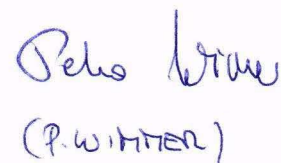 Peter Wimmer
(P. WIMMER)